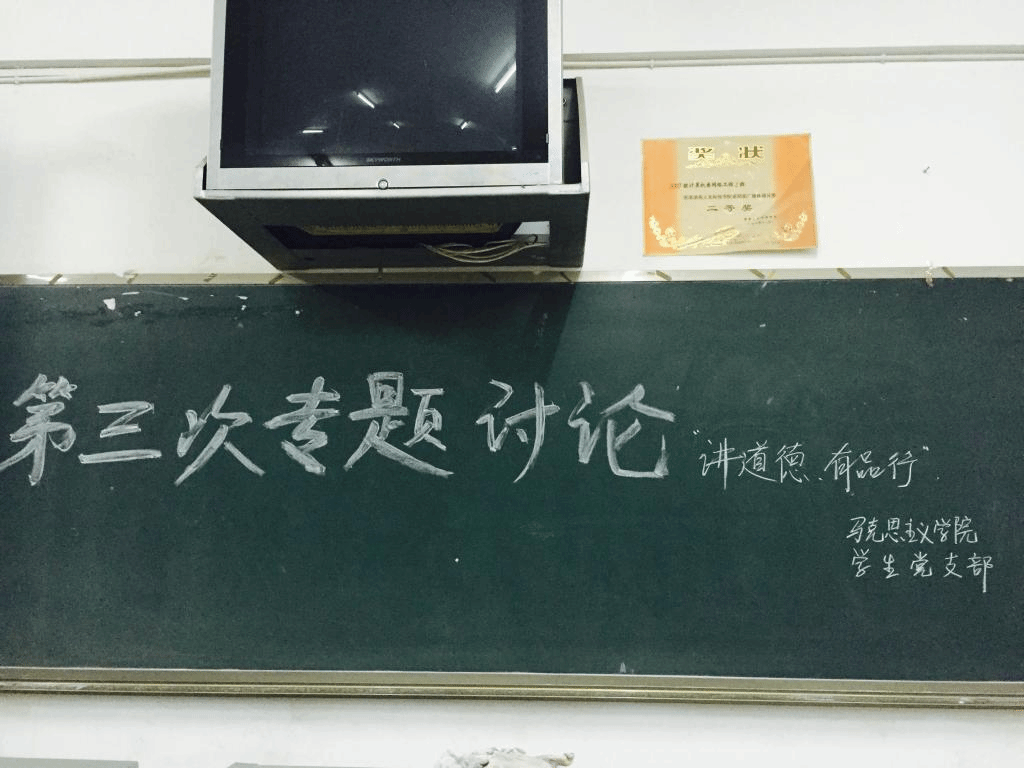 SKYWORTH
奖状
二等奖
第三次专题讨论 "讲道德、有品行".
马克思主义学院
学生党支部